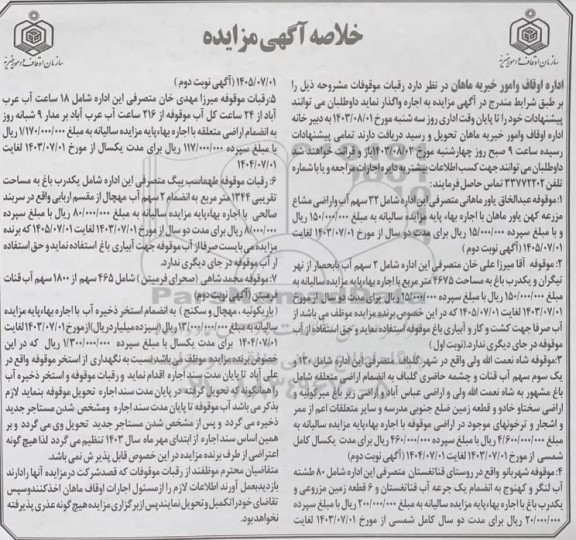 خلاصه آگهی مزایده
سازمان اوقاف و امور خیریه
سازمان اوقاف و امور خیریه
اداره اوقاف وامور خیریه ماهان در نظر دارد رقبات موقوفات مشروحه ذیل را
بر طبق شرایط مندرج در آگهی مزایده به اجاره واگذار نماید داوطلبان می توانند
پیشنهادات خود را تا پایان وقت اداری روز سه شنبه مورخ ۱۴۰۳/۰۸/۰۱ به دبیر خانه
اداره اوقاف وامور خیریه ماهان تحویل و رسید دریافت دارند تمامی پیشنهادات
رسیده ساعت ۹ صبح روز چهارشنبه مورخ ۱۴۰۳/۰۸/۰۲ باز و قرائت خواهند شد
داوطلبان می توانند جهت کسب اطلاعات بیشتر به دایره اجارات مراجعه و یا با شماره
تلفن ۳۳۷۷۲۲۰۲ تماس حاصل فرمایند:
۱: موقوفه عبدالخالق یاور ماهانی متصرفی این اداره شامل ۳۲ سهم آب واراضی مشاع
مزرعه کهن یاور ماهان با اجاره بهاء پایه مزایده سالیانه به مبلغ ۱۵۰/۰۰۰/۰۰۰ ریال
و با مبلغ سپرده ۱۵/۰۰۰/۰۰۰ ریال برای مدت دو سال از مورخ ۱۴۰۳/۰۷/۰۱ لغایت
۱۴۰۵/۰۷/۰۱ (آگهی نوبت دوم )
۲: موقوفه آقا میرزا علی خان متصرفی این اداره شامل ۲ سهم آب بانحصار از نهر
تیگران و یکدرب باغ به مساحت ۴۶۷۵ متر مربع با اجاره بهاء پایه مزایده سالیانه به
مبلغ ۱۵۰/۰۰۰/۰۰۰ ریال با مبلغ سپرده ۱۵/۰۰۰/۰۰۰ ریال برای مدت دو سال از مورخ
۱۴۰۳/۰۷/۰۱ لغایت ۱۴۰۵/۰۷/۰۱ که در این خصوص برنده مزایده موظف می باشد از
آب صرفا جهت کشت و کار و آبیاری باغ موقوفه استفاده نماید و حق استفاده از آب
موقوفه در جای دیگری ندارد. (نوبت اول )
۳: موقوفه شاه نعمت الله ولی واقع در شهر گلباف متصرفی این اداره شامل ۱۳۰
یک سوم سهم آب قنات و چشمه حاضری گلباف به انضمام اراضی متعلقه شامل
باغ مشهور به شاه نعمت الله ولی و اراضی عباس آباد و اراضی زیر باغ میرکوئیه و
اراضی سختاو خادو و قطعه زمین ضلع جنوبی مدرسه و سایر متعلقات اعم از ممر
و اشجار و ترخونهای موجود در اراضی موقوفه با اجاره بهاء پایه مزایده سالیانه به
مبلغ ۴/۶۰۰/۰۰۰/۰۰۰ ریال با مبلغ سپرده ۴۶۰/۰۰۰/۰۰۰ ریال برای مدت یکسال کامل
شمسی از مورخ ۱۴۰۳/۰۷/۰۱ لغایت ۱۴۰۴/۰۷/۰۱ (آگهی نوبت دوم)
۴: موقوفه شهربانو واقع در روستای قناتغستان متصرفی این اداره شامل ۸۰ طشته
آب لنگر و کهنوج به انضمام یک جرعه آب قناتغستان و ۶ قطعه زمین مزروعی و
یکدرب باغ با اجاره بهاء پایه مزایده سالیانه به مبلغ ۲۰۰/۰۰۰/۰۰۰ ریال با مبلغ سپرده
۲۰/۰۰۰/۰۰۰ ریال برای مدت دو سال کامل شمسی از مورخ ۱۴۰۳/۰۷/۰۱ لغایت
۱۴۰۵/۰۷/۰۱ (آگهی نوبت دوم )
۵: رقبات موقوفه میرزا مهدی خان متصرفی این اداره شامل ۱۸ ساعت آب عرب
آباد از ۲۴ ساعت کل آب موقوفه از ۲۱۶ ساعت آب عرب آباد بر مدار ۹ شبانه روز
به انضمام اراضی متعلقه با اجاره بهاء پایه مزایده سالیانه به مبلغ ۱/۱۷۰/۰۰۰/۰۰۰ ریال
با مبلغ سپرده ۱۱۷/۰۰۰/۰۰۰ ریال برای مدت یکسال از مورخ ۱۴۰۳/۰۷/۰۱ لغایت
۱۴۰۴/۰۷/۰۱
۶: رقبات موقوفه طهماسب بیگ متصرفی این اداره شامل یکدرب باغ به مساحت
تقریبی ۱۳۴۴ متر مربع به انضمام ۲ سهم آب مهچال از مقسم اربابی واقع در سربند
صالحی با اجاره بهاء پایه مزایده سالیانه به مبلغ ۸۰/۰۰۰/۰۰۰ ریال با مبلغ سپرده
۸/۰۰۰/۰۰۰ ریال برای مدت دو سال از مورخ ۱۴۰۳/۰۷/۰۱ لغایت ۱۴۰۵/۰۷/۰۱ که برنده
مزایده می بایست صرفا از آب موقوفه جهت آبیاری باغ استفاده نماید و حق استفاده
از آب موقوفه در جای دیگری ندارد.
۷: موقوفه محمد شاهی (صحرای فرمیتن ) شامل ۴۶۵ سهم از ۱۸۰۰ سهم آب قنات
فرمیتن (آگهی نوبت دوم)
( باریکوئیه ، مهچال و سکنج ) به انضمام استخر ذخیره آب با اجاره بهاء پایه مزایده
سالیانه به مبلغ ۱۳/۰۰۰/۰۰۰/۰۰۰ ریال (سیزده میلیارد ریال) از مورخ ۱۴۰۳/۰۷/۰۱ لغایت
۱۴۰۴/۰۷/۰۱ برای مدت یکسال با مبلغ سپرده ۱/۳۰۰/۰۰۰/۰۰۰ ریال که در این
خصوص برنده مزایده موظف می باشد نسبت به نگهداری از استخر موقوفه واقع در
علی آباد تا پایان مدت سند اجاره اقدام نماید و رقبات موقوفه و استخر ذخیره آب
را همانگونه که تحویل گرفته در پایان مدت سند اجاره تحویل موقوفه بنماید لازم
بذکر می باشد آب موقوفه تا پایان مدت سند اجاره ومشخص شدن مستاجر جدید
ذخیره می گردد و پس از مشخص شدن مستاجر جدید تحویل وی می گردد و بر
همین اساس سند اجاره از ابتدای مهر ماه سال ۱۴۰۳ تنظیم می گردد لذا هیچ گونه
اعتراضی از طرف برنده مزایده در این خصوص قابل پذیرش نمی باشد.
متقاضیان محترم موظفند از رقبات موقوفات که قصد شرکت در مزایده آنها را دارند
بازدید بعمل آورند اطلاعات لازم را از مسئول اجارات اوقاف ماهان اخذ کنند و سپس
تقاضای خود را تکمیل و تحویل نمایند پس از برگزاری مزایده هیچ گونه عذری پذیرفته
نخواهد بود.